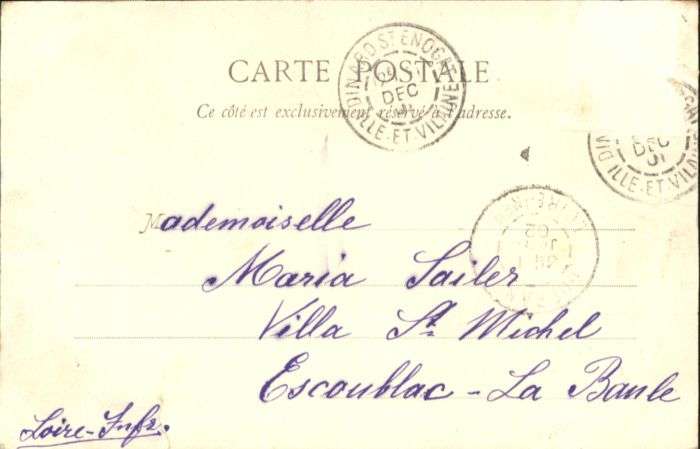 CARTE POSTALE
Ce côté est exclusivement réservé à l'adresse.
DINARD ST ENOGAT
DEC
ILLE-ET-VILAINE
DEC
01
ILLE-ET-VILAINE
02
Mademoiselle
Maria Sailer
Villa St. Michel
Escoublac - La Baule
Loire-Infre.